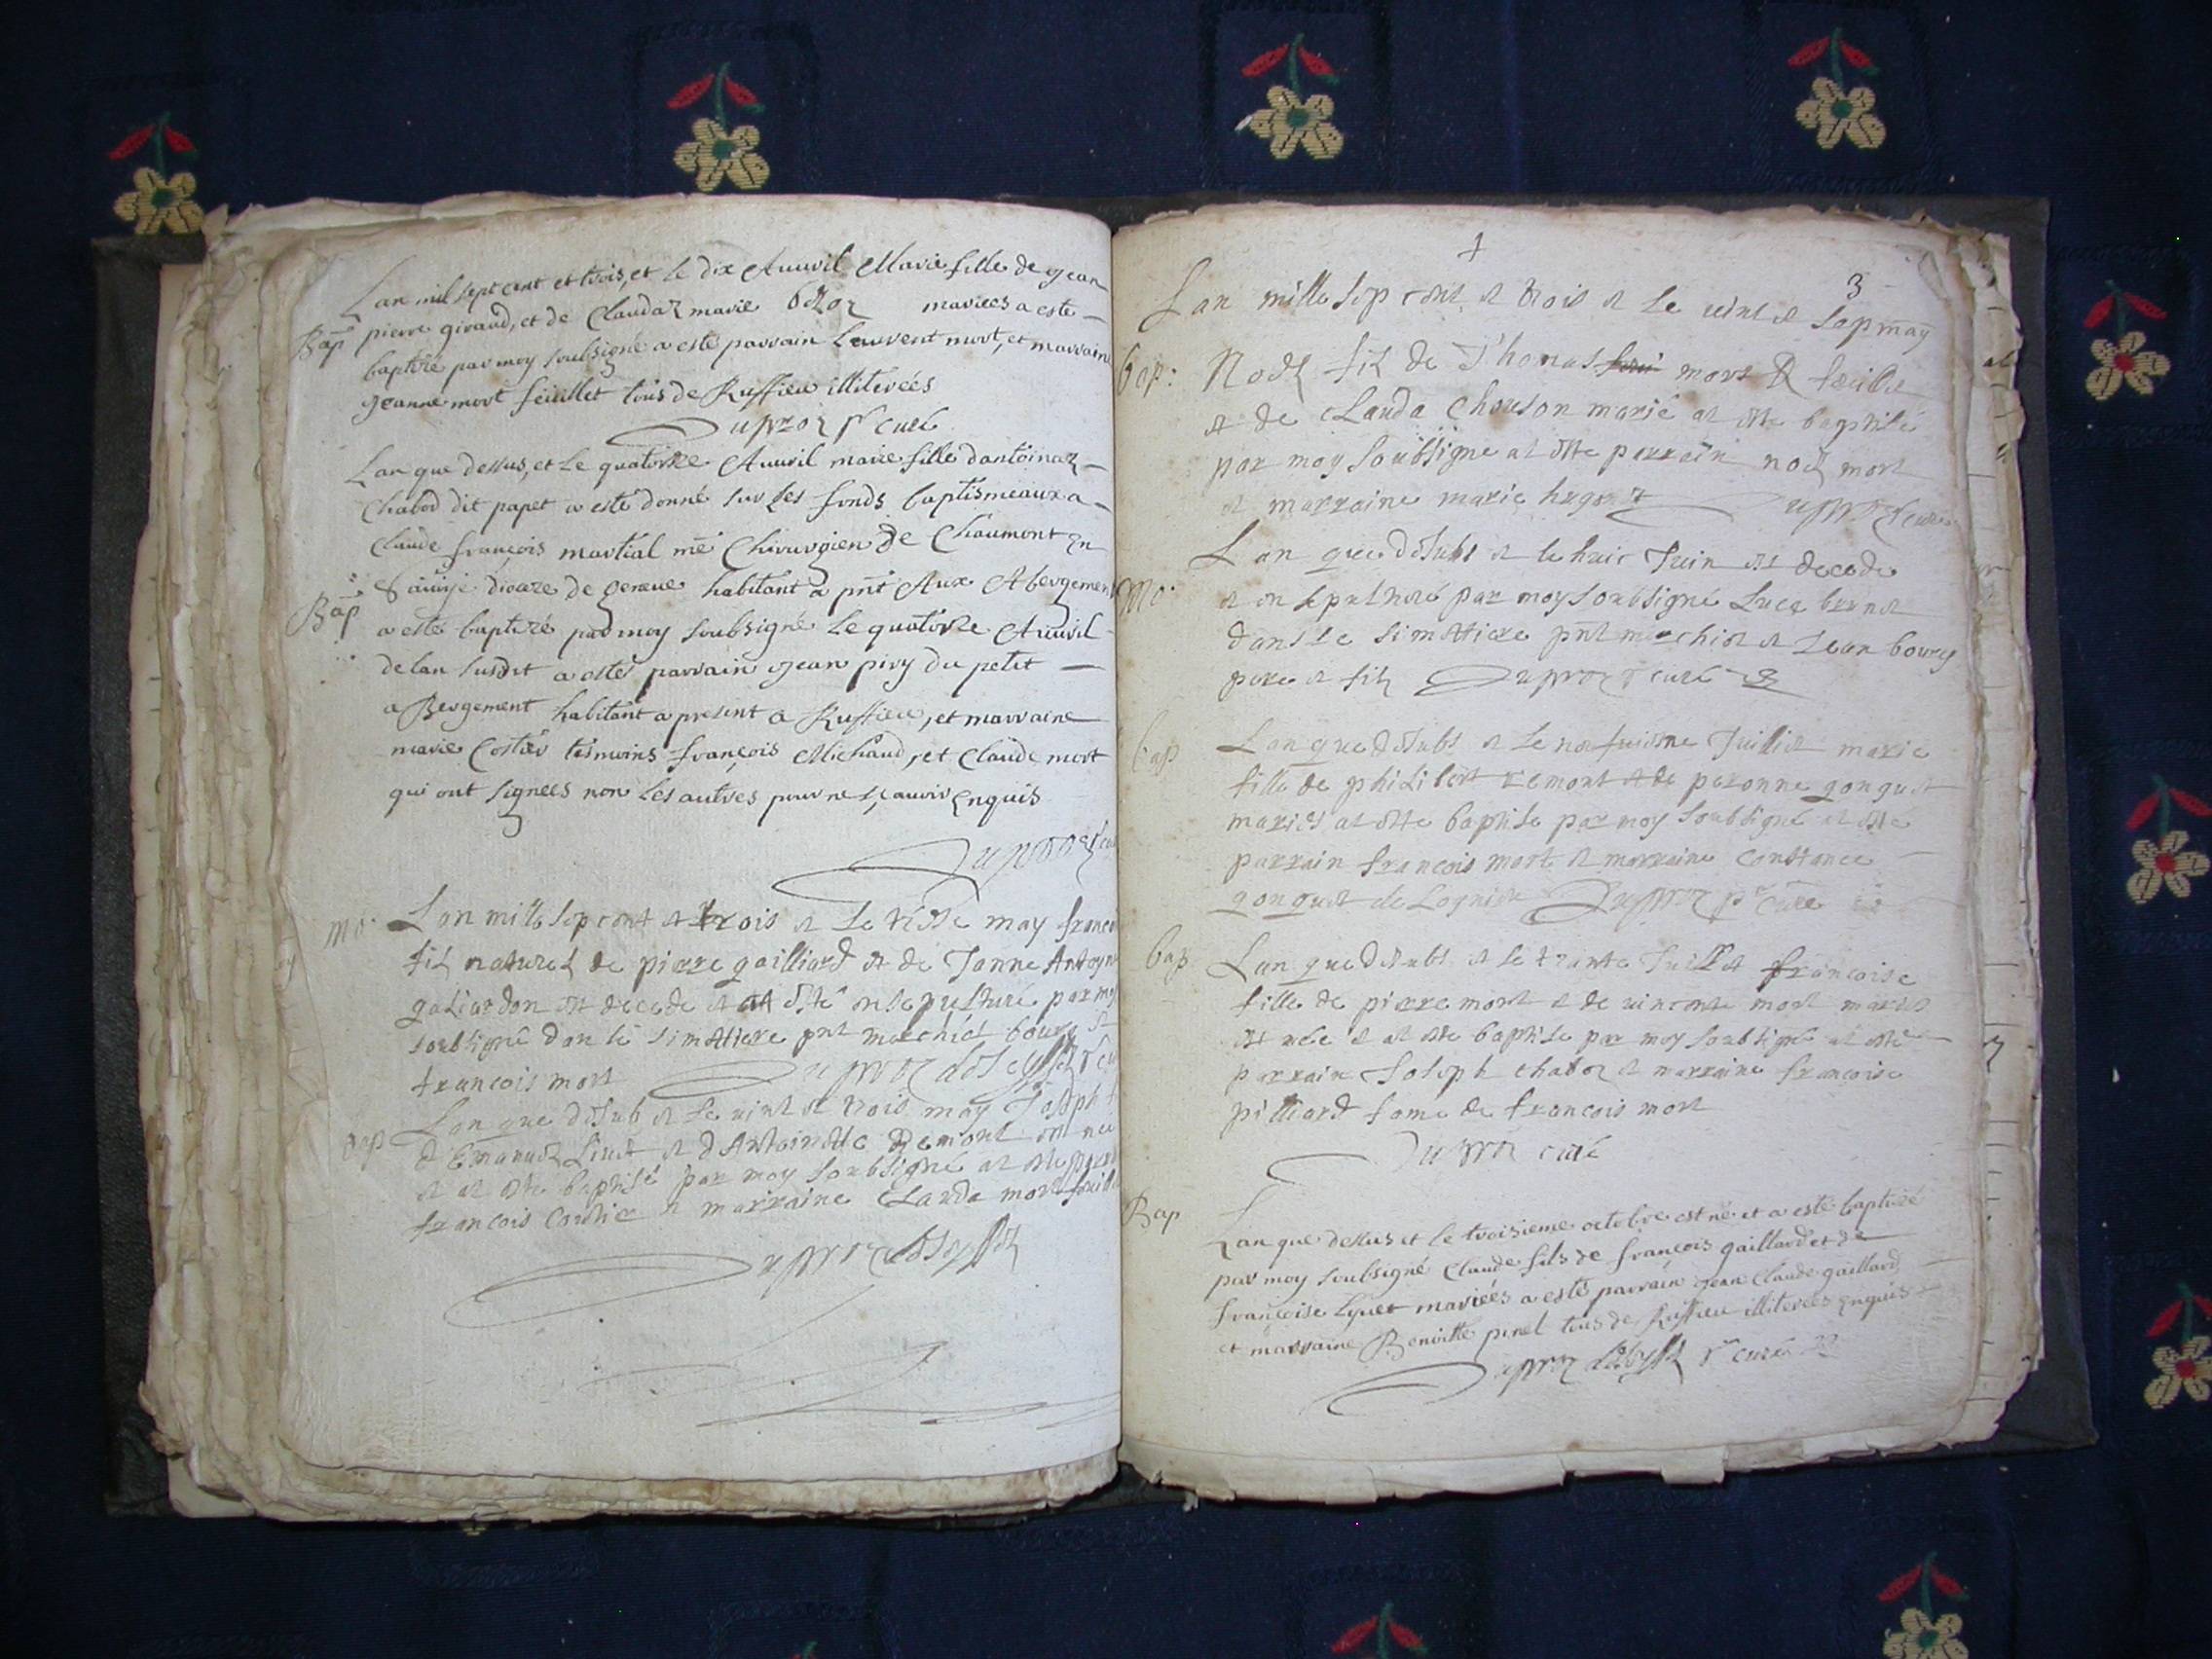 Lan mil sept cent et trois, et le dix Auuril Marie fille de jean
Bap pierre giraud, et de Claudaz marie mariees a este
baptizé par moy soubsigné a esté parrain Laurent mort, et marraine
jeanne mort feuillet tous de Ruffieu illiterées
Duproz curé
Lan que dessus, et Le quatorze Auuril marie fille dantoinaz
Chabod dit papet a esté donné sur Les fonds baptismeaux a
Claude françois martial me Chirurgien de Chaumont En
Sauoje dioceze de geneue habitant a pnt Aux Abergement
Bap a esté baptizé par moy soubsigné Le quatorze Auuril
de lan susdit a estés parrain jean piuy du petit
aBergement habitant a present a Ruffieu, et marraine
marie Costier tesmoins françois Michaud, et Claude mort
qui ont signees non Les autres pour ne sçauoir Enquis
Duproz
mo Lan mille sep cent et trois et le may
fil naturel de pierre gailliard et de Janne Antoyn
galiardon est decede et at esté ensepulturé par moy
soubsigné dan le simettiere pnt bourg
francois mort Duproz
bap Lan que desub et le uint et trois may Joseph
d Emanuel Liuet et d Antoinette Demont est né
et at este baptisé par moy soubsigné at este
francois Costier et marraine Clauda mort
Duproz
3
Lan mille sep cent et trois et le uint et sep may
bap: Noel fil de Thomas mort
et de Clauda Chouson marié at este baptisé
par moy soubsigne at este parrain noel mort
et marraine marie Duproz curé
Lan que desubs et le huit Juin est decede
Mo et ensepulturé par moy soubsigné Luce
dans le simettiere pnt et Jean bourg
pere et fil Duproz curé
bap Lan que desubs et le Juillet marie
fille de philibert remont et de peronne gonguet
mariés at este baptise par moy soubsigné at este
parrain francois mort et marraine Constance
gonguet de Duproz curé
bap Lan que desubs et le trante Juillet francoise
fille de pierre mort et de uincente mort mariés
est née et at este baptise par moy soubsigné at este
parrain Joseph chaboz et marraine francoise
pilliard fame de francois mort
Duproz curé
Bap Lan que dessus et le troisieme octobre est né et a esté baptizé
par moy soubsigné Claude fils de françois gaillard et de
françoise Lyuet mariéés a esté parrain jean Claude gaillard
et marraine Benoitte pinel tous de Ruffieu illiterées Enquis
Duproz curé